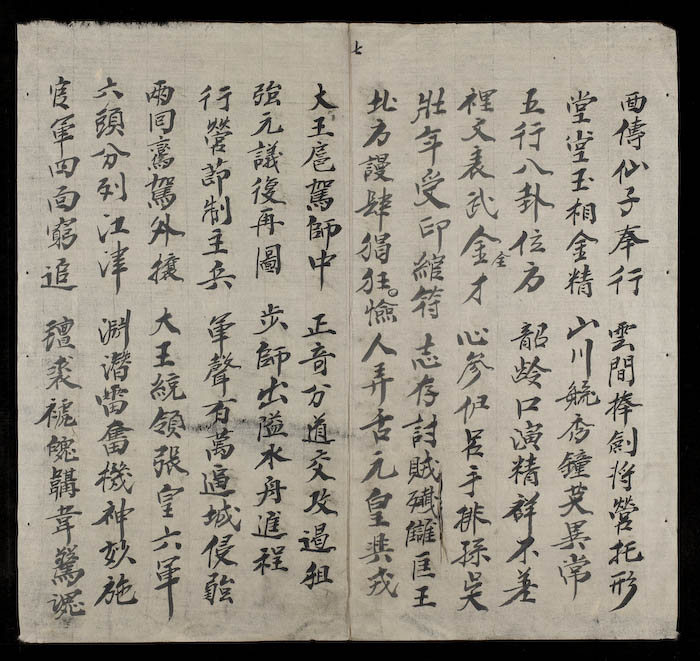 西傳仙子奉行 雲間捧劍將營托形
堂堂玉相金精 山川毓秀鐘英異常
五行八卦位方 韶齡口演精群不差
裡文表武金才 心參伊呂手排孫吳
全
壯年受印綰符 志存討賊殲讎匡王
北方謾肆猖狂。憸人弄舌元皇興戎
七
大王扈駕師中 正奇分道交攻過徂
強元議復再圖 步師出隘水舟進程
行營節制主兵 軍聲有萬逼城侵強
兩回鸞駕外攘 大王統領張皇六軍
六頭分列江津 淵潛雷奮機神妙施
官軍四面窮追 氊裘褫魄韝韋驚魂